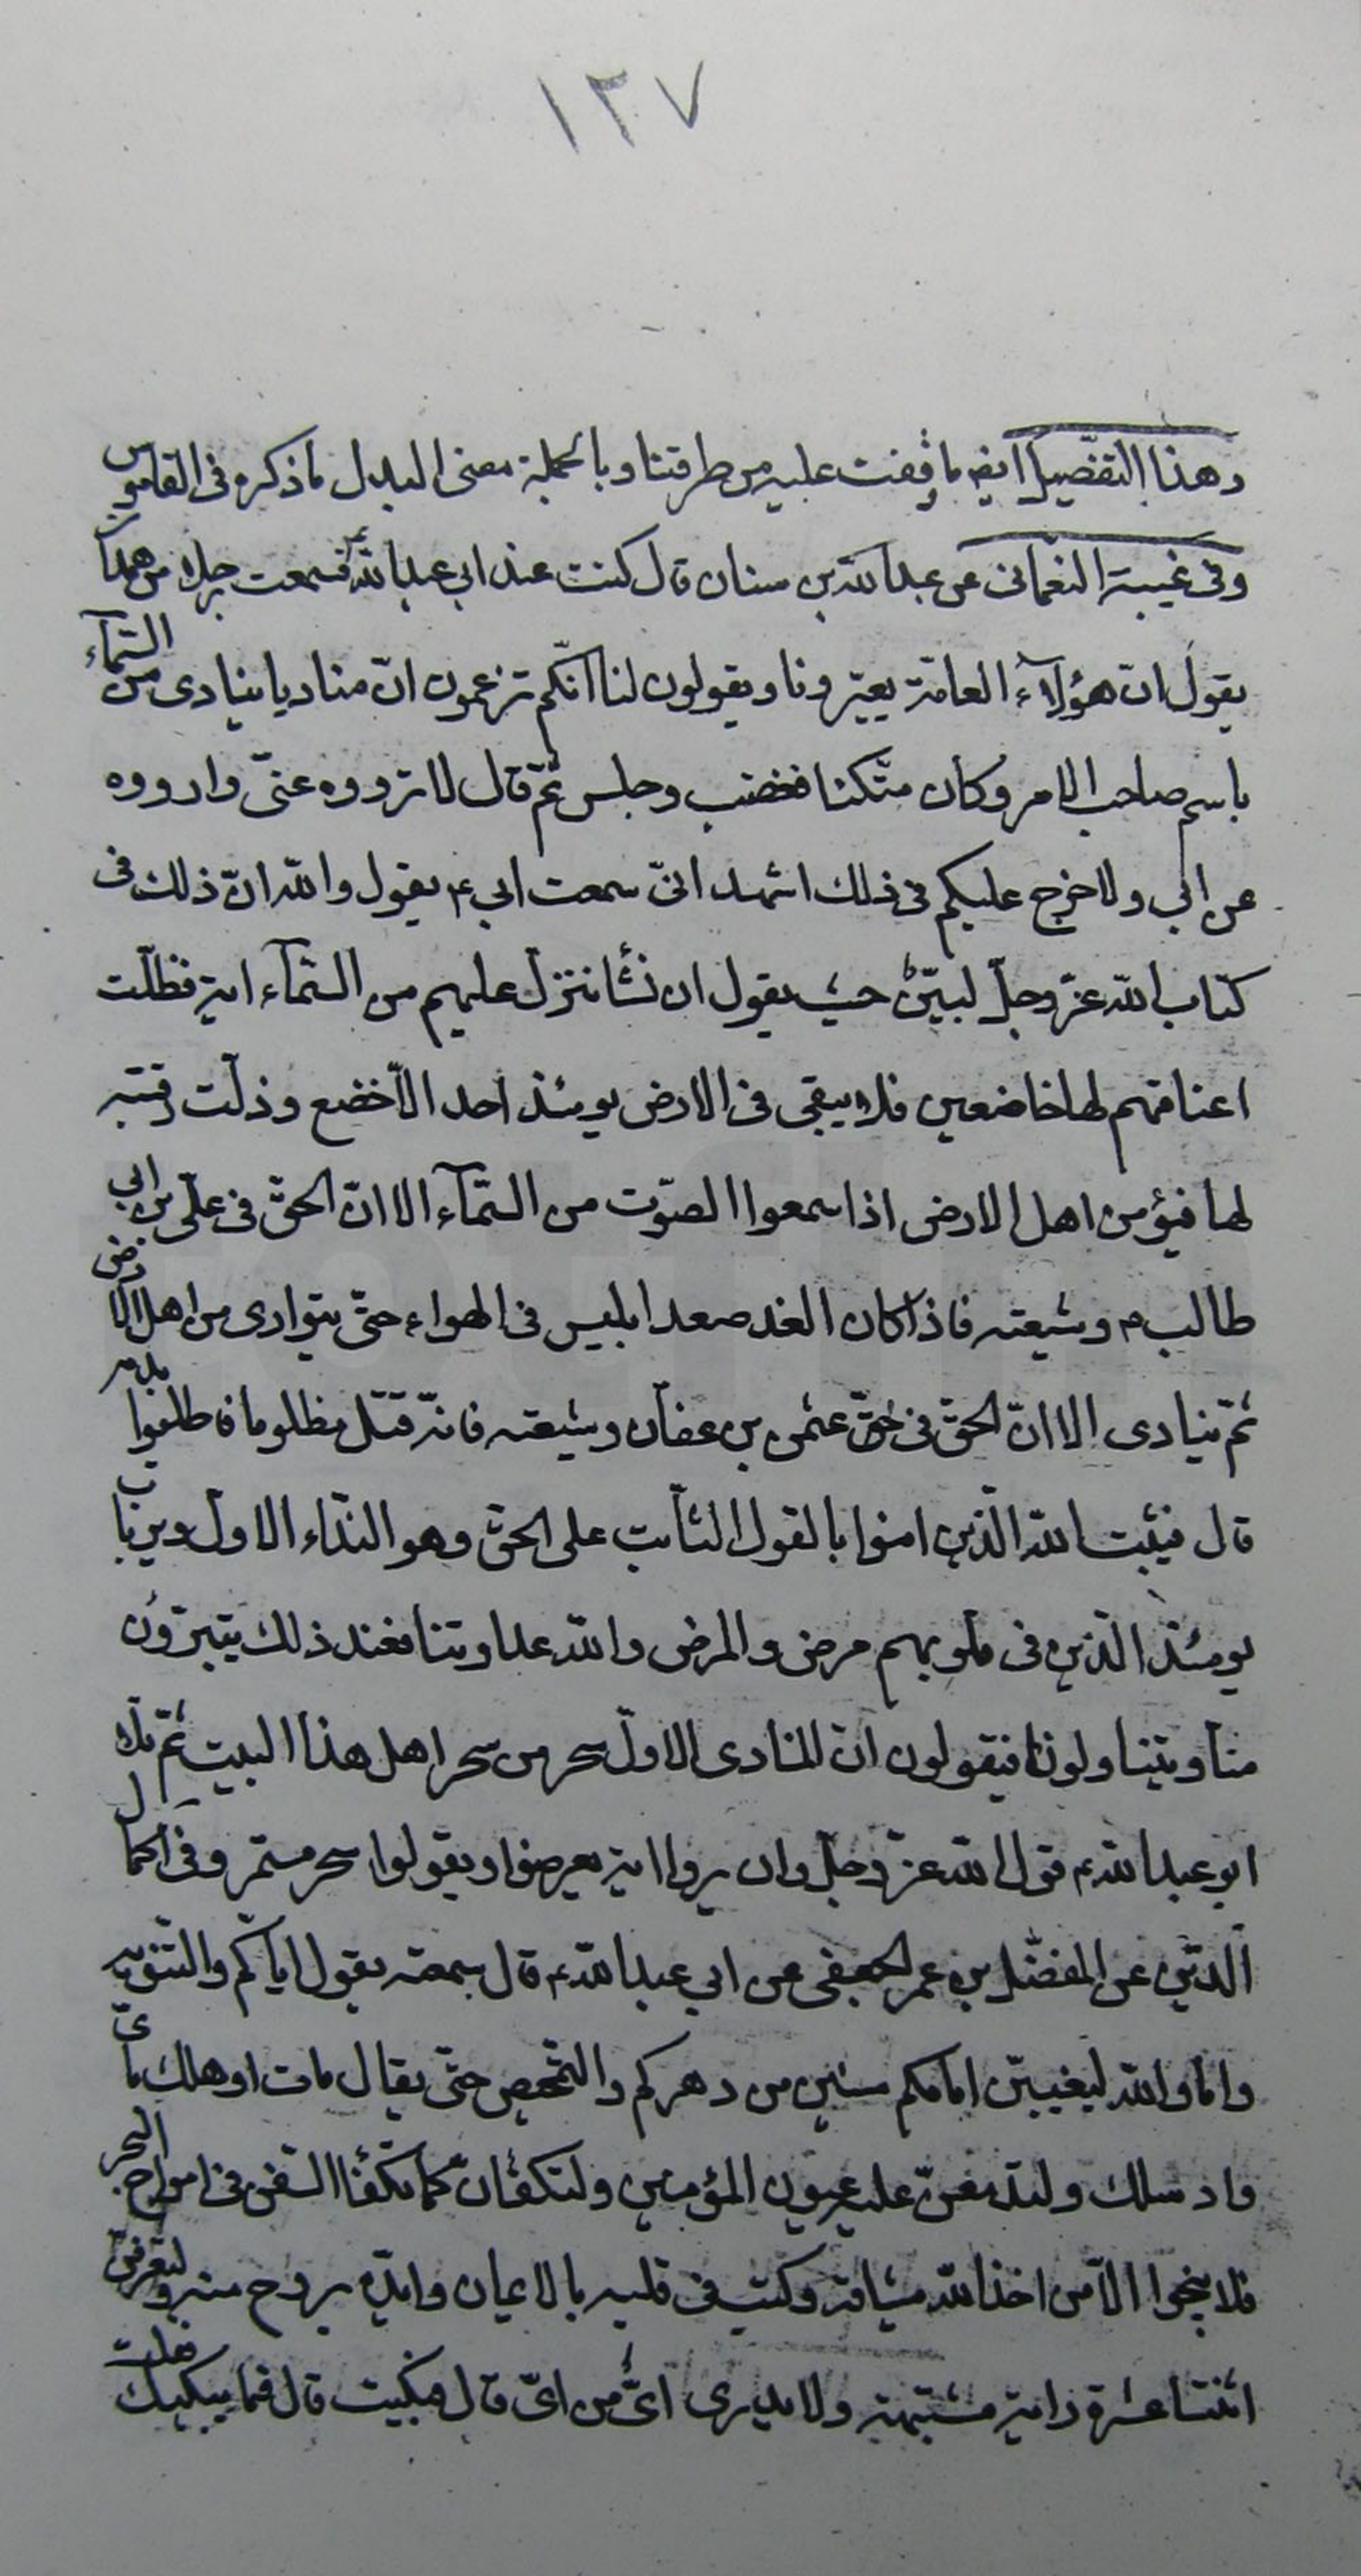 ١٣٧
وهذا التفصيل ايضه ما وقفت عليه من طرقتنا وبالجملة معنى البدل ما ذكره فى القاموس
وفى غيبة النعمانى عن عبد الله بن سنان قال كنت عند ابى عبد الله ع فسمعت رجلا من همدا
يقول ان هؤلآء العامة يعيّرونا ويقولون لنا انّكم تزعمون انّ مناديا ينادى من السّمآء
باسم صاحب الامر وكان متّكئا فغضب وجلس ثمّ قال لا ترووه عنّى وارووه
عن ابى ولا حرج عليكم فى ذلك اشهد انّى سمعت ابى ع يقول والله انّ ذلك فى
كتاب الله عزّ وجلّ لبيّن حيث يقول ان نشأ ننزل عليهم من السّمآء اية فظلّت
اعناقهم لها خاضعين فلا يبقى فى الارض يومئذ احد الّا خضع وذلّت رقبته
لها فيؤمن اهل الارض اذا سمعوا الصّوت من السّمآء الا انّ الحقّ فى علىّ بن ابى
طالب ع وشيعته فاذا كان الغد صعد ابليس فى الهواء حتّى يتوارى من اهل الارض
ثمّ ينادى الا انّ الحقّ فى عثمن بن عفّان وشيعته فانّه قتل مظلوما فاطلبوا بدمه
قال فيثبت الله الّذين امنوا بالقول الثّابت على الحقّ وهو النّداء الاول ويرتاب
يومئذ الّذين فى قلوبهم مرض والمرض والله عداوتنا فعند ذلك يتبرّؤن
منّا ويتناولونا فيقولون انّ المنادى الاوّل سحر من سحر اهل هذا البيت ثمّ تلا
ابو عبد الله ع قول الله عزّ وجلّ وان يروا اية يعرضوا ويقولوا سحر مستمر وفى اكمال
الدّين عن المفضّل بن عمر الجعفى عن ابى عبد الله ع قال سمعته يقول ايّاكم والتّنويه
واما والله ليغيبنّ امامكم سنين من دهركم والتّمحص حتّى يقال مات او هلك باىّ
واد سلك ولتدمعنّ عليه عيون المؤمنين ولتكفأنّ كما تكفأ السّفن فى امواج البحر
فلا ينجوا الّا من اخذ الله ميثاقه وكتب فى قلبه بالايمان وايّده بروح منه ولترفعنّ
اثنتا عشرة راية مشتبهة ولا يدرى اىّ من اىّ قال فبكيت قال فما يبكيك فقلت